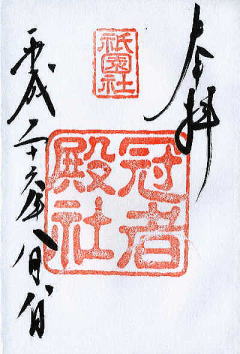 奉拝
祇園社
冠者殿社
平成二十六年八月八日